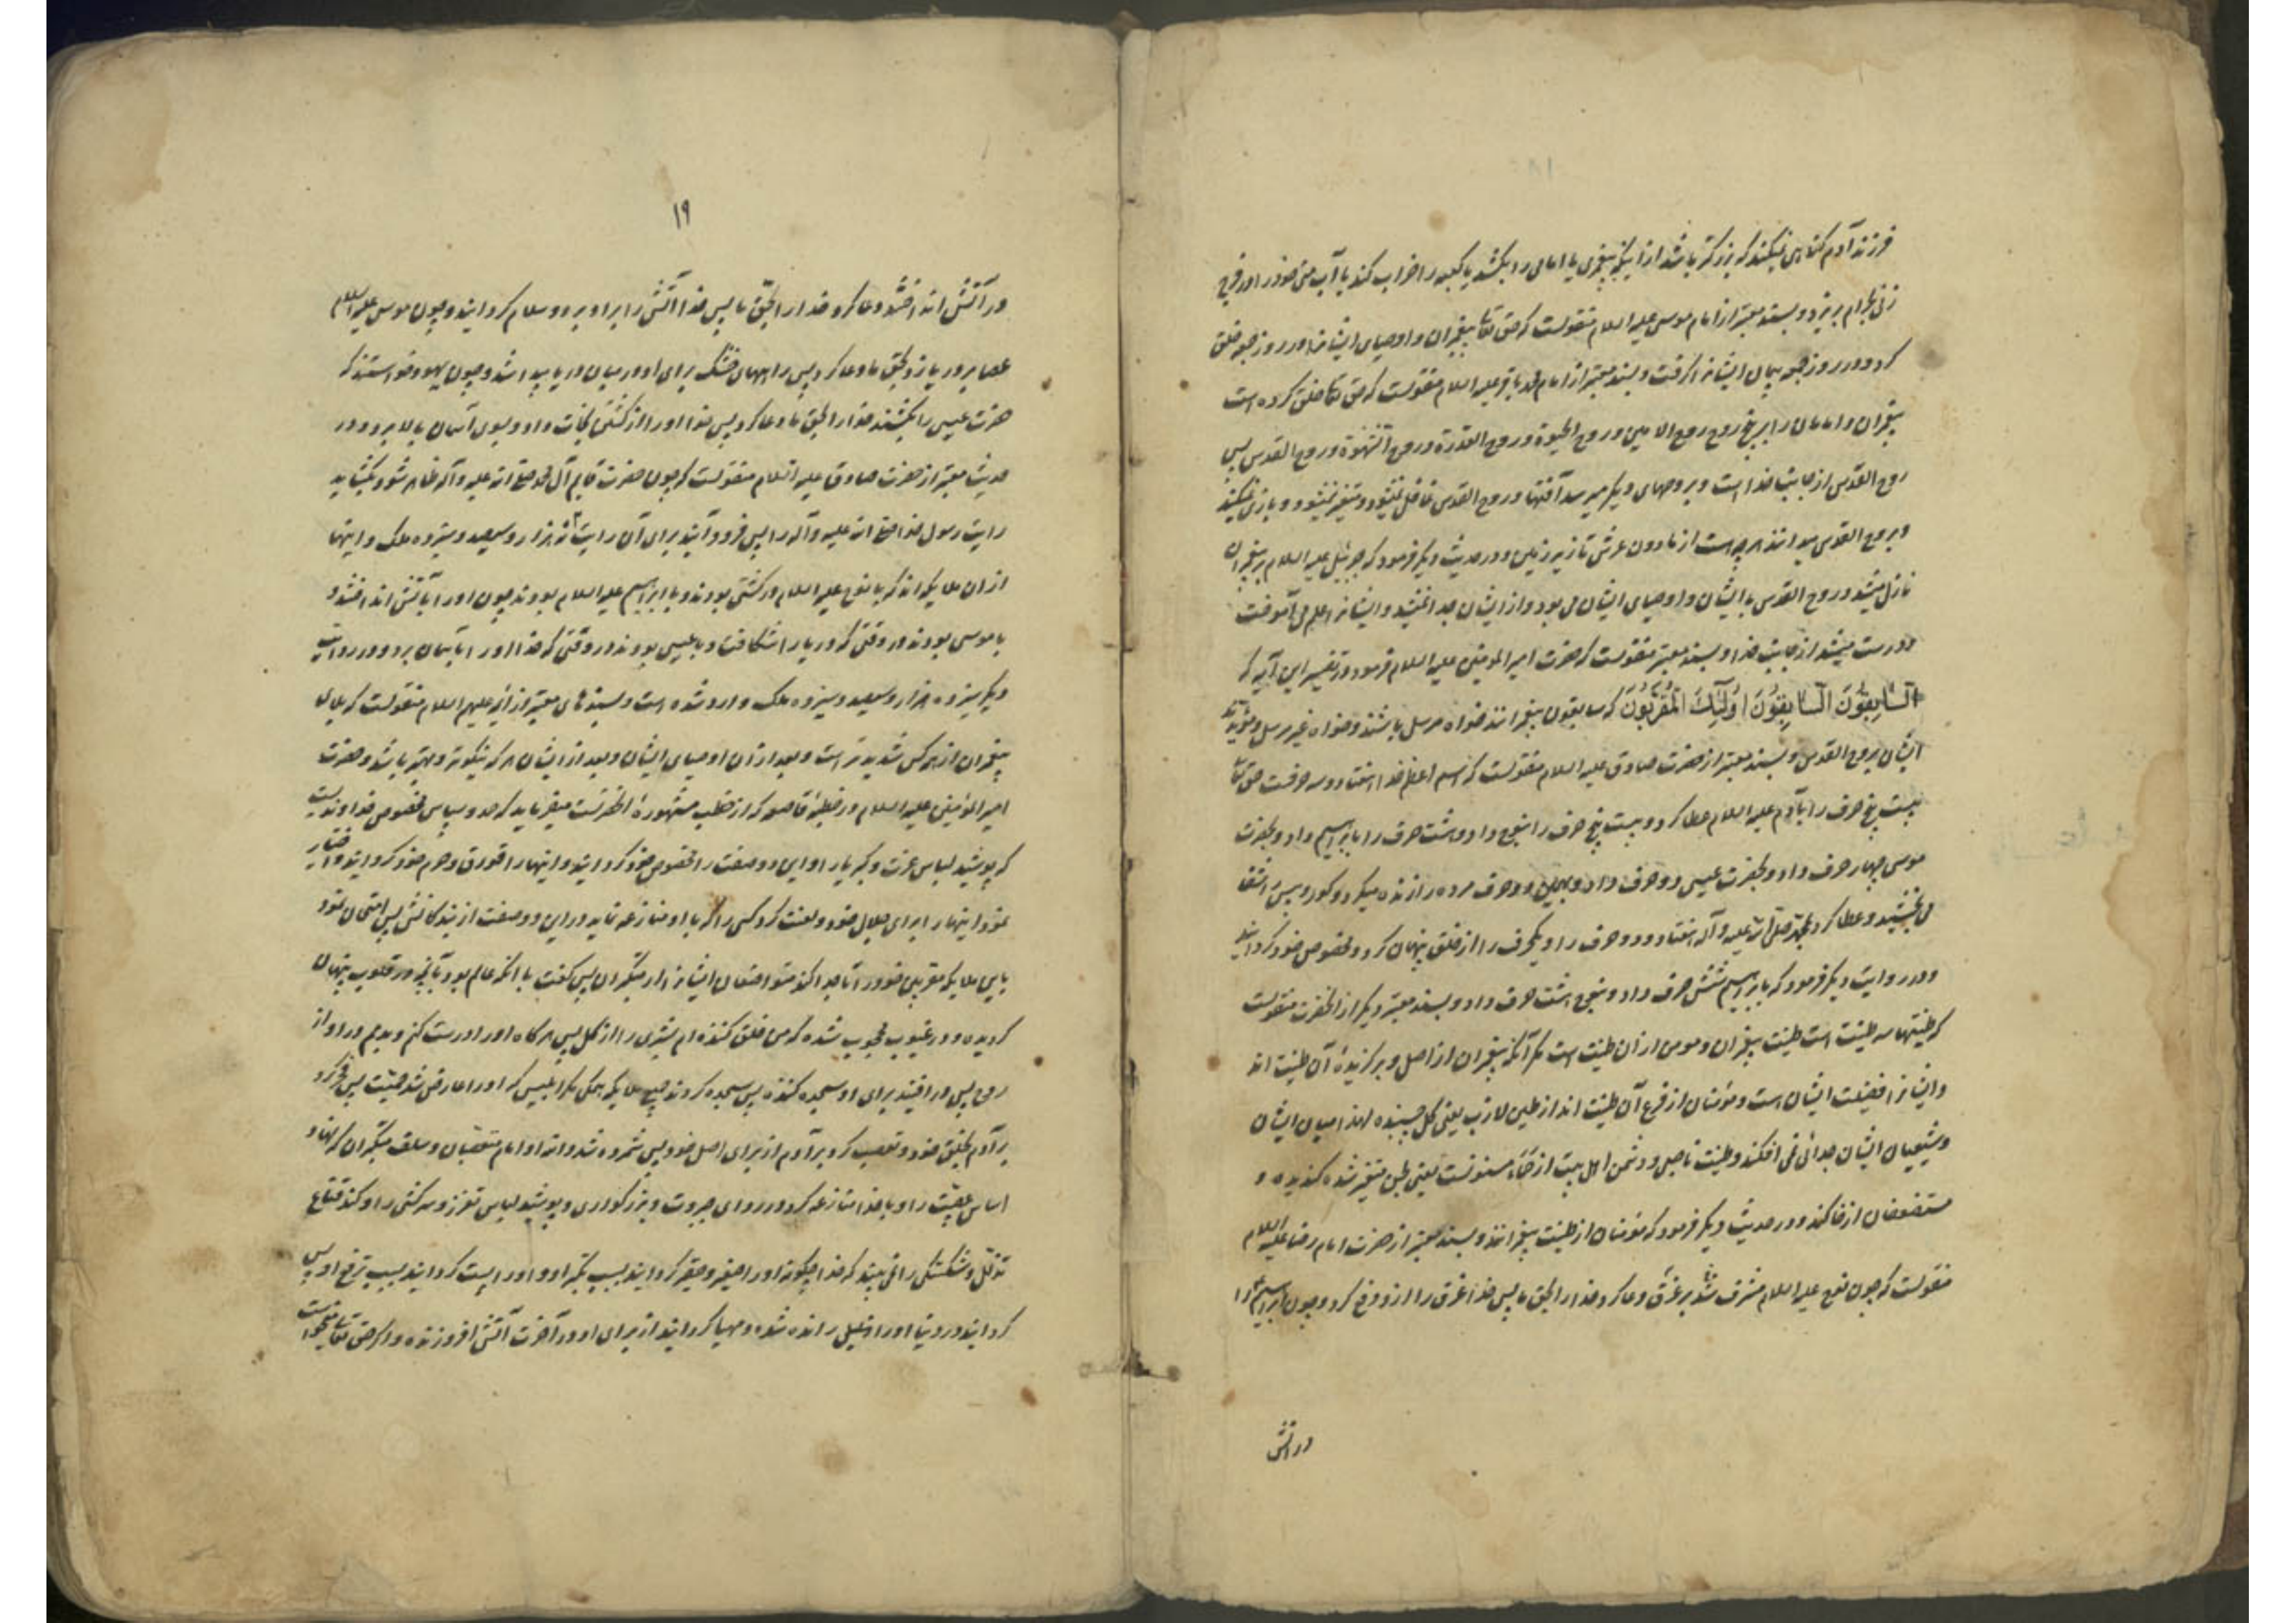 فرزند آدم گناهی نمیکند که بزرگتر باشد از اینکه پیغمبری یا امامی را بکشد یا کعبه را خراب کند یا آب منی خود را در فرج
زنی بحرام بریزد و بسند معتبر از امام موسی علیه السلام منقولست که حق تعالی پیغمبران و اوصیای ایشانرا در روز جمعه خلق
کرد و در روز جمعه پیمان ایشانرا گرفت و بسند معتبر از امام محمد باقر علیه السلام منقولست که حق تعالی خلق کرده است
پیغمبران و امامان را بر پنج روح روح الایمان و روح الحیوة و روح القدرة و روح الشهوة و روح القدس پس
روح القدس از جانب خدا است و بروحهای دیگر میرسد آفتها و روح القدس غافل نمیشود و متغیر نمیشود و بازی نمیکند
و بروح القدس میدانند هر چه است از مادون عرش تا زیر زمین و در حدیث دیگر فرمود که جبرئیل علیه السلام بر پیغمبران
نازل میشد و روح القدس با ایشان و اوصیای ایشان می بود و از ایشان جدا نمیشد و ایشانرا علم می آموخت
و درست میشد از جانب خدا و بسند معتبر منقولست که حضرت امیر المومنین علیه السلام فرمود در تفسیر این آیه که
اَلسّابِقُونَ اَلسّابِقُونَ اُولٰئِكَ الْمُقَرَّبُونَ که سابقون پیغمبرانند خواه مرسل باشند و خواه غیر مرسل و مؤیدند
ایشان بروح القدس و بسند معتبر از حضرت صادق علیه السلام منقولست که اسم اعظم خدا هفتاد و سه حرفست حق تعالی
بیست پنج حرف را بآدم علیه السلام عطا کرد و بیست پنج حرف را بنوح داد و هشت حرف را بابراهیم داد و بحضرت
موسی چهار حرف داد و بحضرت عیسی دو حرف داد و بهمین دو حرف مرده را زنده میکرد و کور و پیس را شفا
می بخشید و عطا کرد بمحمد صلی الله علیه و آله هفتاد و دو حرف را و یکحرف را از خلق پنهان کرد و مخصوص خود گردانید
و در روایت دیگر فرمود که بابراهیم شش حرف داد و بنوح هشت حرف داد و بسند معتبر دیگر از انحضرت منقولست
که طینتها سه طینت است طینت پیغمبران و مومن از ان طینت است مگر آنکه پیغمبران از اصل و برگزیدهٔ آن طینت اند
و ایشانرا فضیلت ایشان است و مؤمنان از فرع آن طینت اند از طین لازب یعنی گل چسبنده لهذا میان ایشان
و شیعیان ایشان جدائی نمی افکند و طینت ناصبی و دشمن اهل بیت از حَمَاء مسنونست یعنی لجن متغیر شده گندیده و
مستضعفان از خاکند و در حدیث دیگر فرمود که مؤمنان از طینت پیغمبرانند و بسند معتبر از حضرت امام رضا علیه السلام
منقولست که چون نوح علیه السلام مشرف شد بر غرق دعا کرد خدا را بحق ما پس خدا غرق را از او دفع کرد و چون ابراهیم را
در آتش
۱۹
در آتش انداختند دعا کرد خدا را بحق ما پس خدا آتش را بر او برد و سلام گردانید و چون موسی علیه السلام
عصا بر دریا زد بحق ما دعا کرد پس راههای خشک برای او در میان دریا پیدا شد و چون یهود خواستند که
حضرت عیسی را بکشند خدا را بحق ما دعا کرد پس خدا او را از کشتن نجات داد و بسوی آسمان بالا برد و در
حدیث معتبر از حضرت صادق علیه السلام منقولست که چون حضرت قایم آل محمد صلی الله علیه و آله ظاهر شود بگشاید
رایت رسول خدا صلی الله علیه و آله را پس فرود آیند برای آن رایت نه هزار و سیصد و سیزده ملک و اینها
از ان ملایکه اند که با نوح علیه السلام در کشتی بودند و با ابراهیم علیه السلام بودند چون او را بآتش انداختند و
با موسی بودند در وقتی که دریا را شکافت و با عیسی بودند در وقتی که خدا او را بآسمان برد و در روایت
دیگر سیزده هزار و سیصد و سیزده ملک وارد شده است و بسندهای معتبر از ائمه علیهم السلام منقولست که بلای
پیغمبران از هر کس شدیدتر است و بعد از ان اوصیای ایشان و بعد از ایشان هر که نیکوتر و بهتر باشد و حضرت
امیر المؤمنین علیه السلام در خطبهٔ قاصعه که از خطب مشهورهٔ انحضرتست میفرماید که حمد و سپاس مخصوص خداوندیست
که پوشید لباس عزت و کبریا را و این دو صفت را مخصوص خود گردانید و اینها را قورق و حرم خود گردانید و اختیار
نمود اینها را برای جلال خود و لعنت کرد کسی را که با او منازعه نماید در این دو صفت از بندگانش پس امتحان نمود
باین ملایکه مقربین خود را تا جدا کند متواضعان ایشانرا از متکبران پس گفت با انکه عالم بود بآنچه در قلوب پنهان
گردیده و در غیوب محجوب شده که من خلق کننده ام بشری را از گل پس هرگاه او را درست کنم و بدمم در او از
روح پس در افتید برای او سجده کننده پس سجده کردند جمیع ملایکه همگی مگر ابلیس که او را عارض شد حمیّت پس فخر کرد
بر آدم بخلق خود و تعصب کرد بر آدم از برای اصل خود پس شمرده شد و الله او امام متعصبان و سلف متکبران که نهاد
اساس عصبیّت را و با خدا منازعه کرد در ردای جبروت و بزرگواری و پوشید لباس تعزز و سرکشی را و کند قناع
تذلّل و شکستگی را نمی بینید که خدا چگونه او را صغیر و حقیر گردانید بسبب تکبر او و او را پست گردانید بسبب ترفع او پس
گردانید در دنیا او را رانده شده و مهیا گردانید از برای او در آخرت آتش افروزنده و اگر حق تعالی میخواست